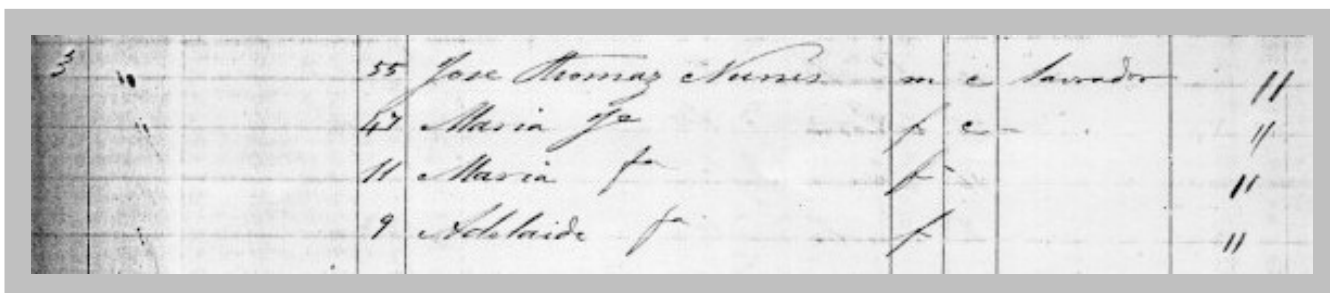 3 " 55 Jose Thomaz Nunes m c Lavrador "
" 47 Maria f c "
" 11 Maria fa f "
" 9 Adelaide fa f "